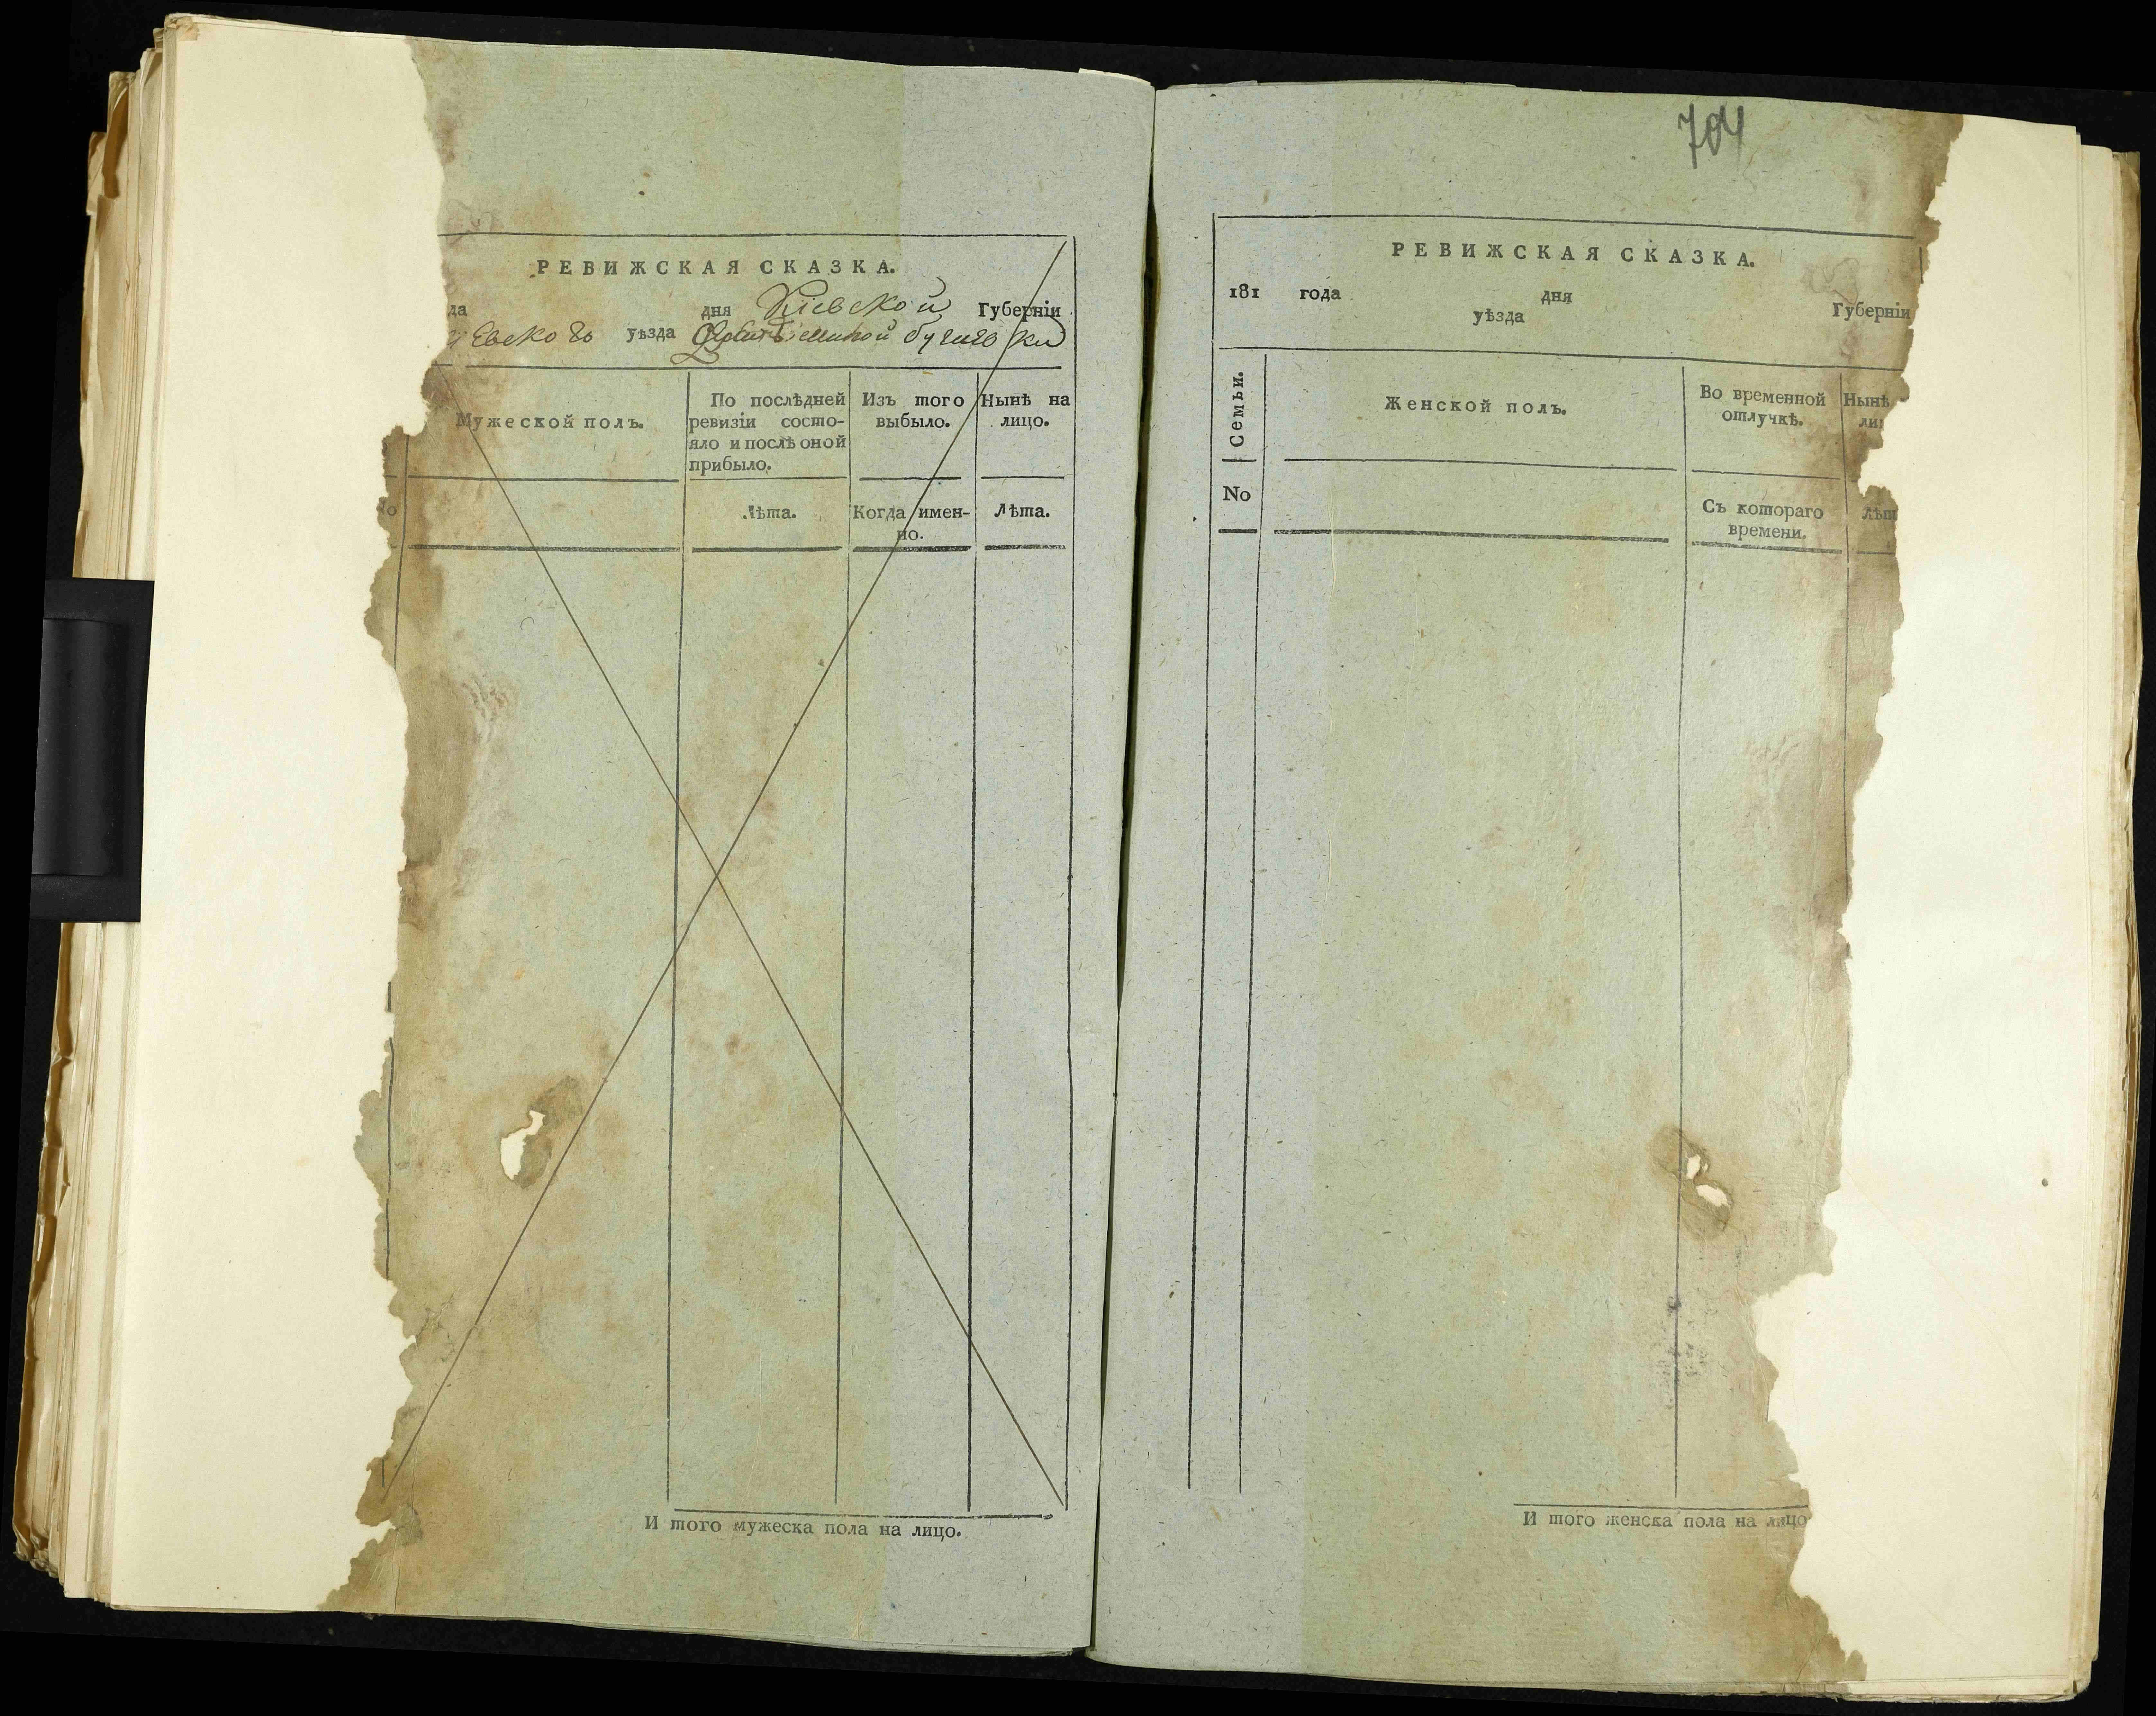 РЕВИЖСКАЯ СКАЗКА.
да дня Кіевской Губерніи
евского уѣзда
Мужеской полъ.
По послѣдней
ревизіи состо-
яло и послѣ оной
прибыло.
Изъ того
выбыло.
Нынѣ на
лицо.
Лѣта.
Когда имен-
но.
Лѣта.
И того мужеска пола на лицо.
704
РЕВИЖСКАЯ СКАЗКА.
181 года дня Губерніи
уѣзда
Семьи.
Женской полъ.
Во временной
отлучкѣ.
Нынѣ
ли
No
Съ котораго
времени.
Лѣт
И того женска пола на лицо